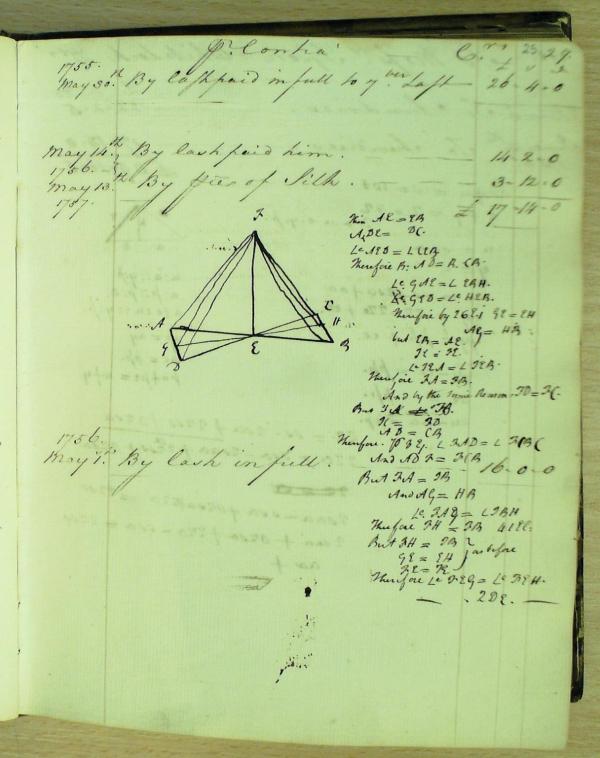 Pr. Contra Cr. 29
1755.
May 30th By Cash paid in full to yr Last 26-4-0
May 14th By Cash paid him. 14-2-0
1756
May 13th By pces of Silk. 3-12-0
1757
£ 17-14-0
F
A
C
H
G
E
B
D
Then AE = EB
DE = DC
Le AED = L CEB
Therefore B: AD = B. CB
Le GAE = L EBH.
Le GED = Le HEB.
Therefore by 26E1 GE = EH
AG = HB
but EB = AE.
FE = FE.
Le FEA = L FEB.
Therefore FA = FB.
And by the same Reason. FD = FC.
But FA = FB.
FC = FD
AD = CB
Therefore. L FAD = L FBC
And AD F = FCB
But FA = FB
And AG = HB
Le FAG = L FBH
Therefore FH = FB 4 1 El:
But FH = FB
GE = EH } as before
FE = FE
Therefore Le FEG = Le FEH.
2DE.
1756.
May 7th By Cash in full. 16-0-0